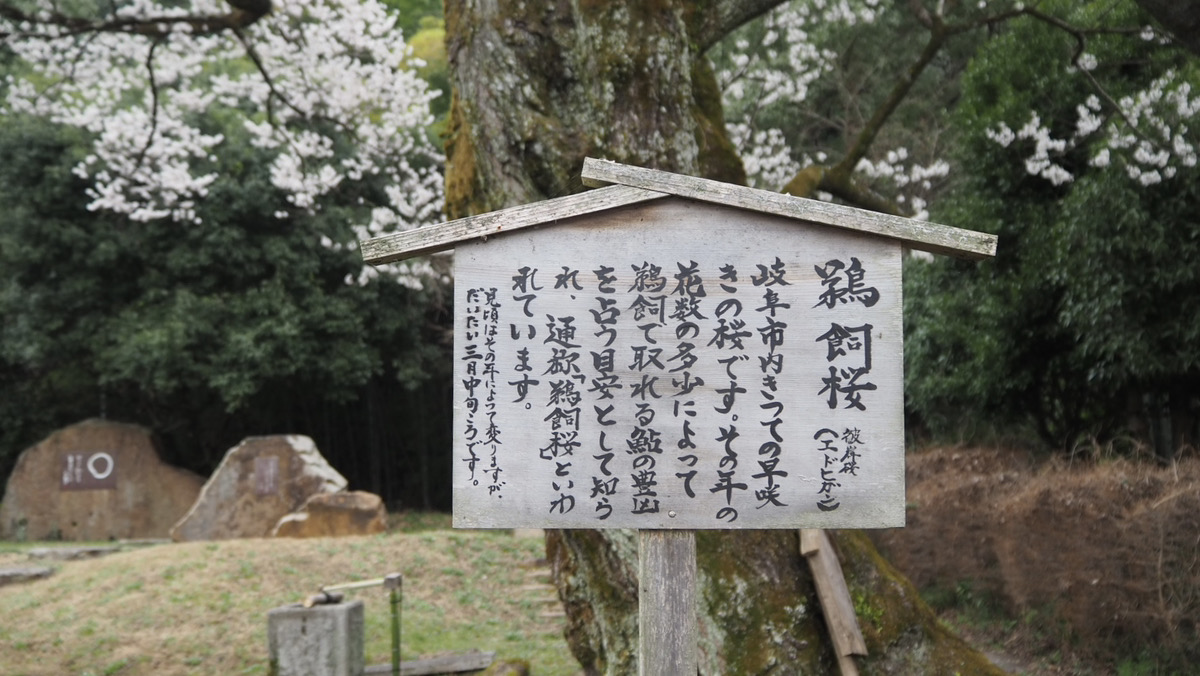 鵜飼桜
彼岸桜
(エドヒガン)
岐阜市内きっての早咲
きの桜です。その年の
花数の多少によって
鵜飼で取れる鮎の豊凶
を占う目安として知ら
れ、通称「鵜飼桜」といわ
れています。
見頃はその年によって変りますが、
だいたい三月中旬ころです。